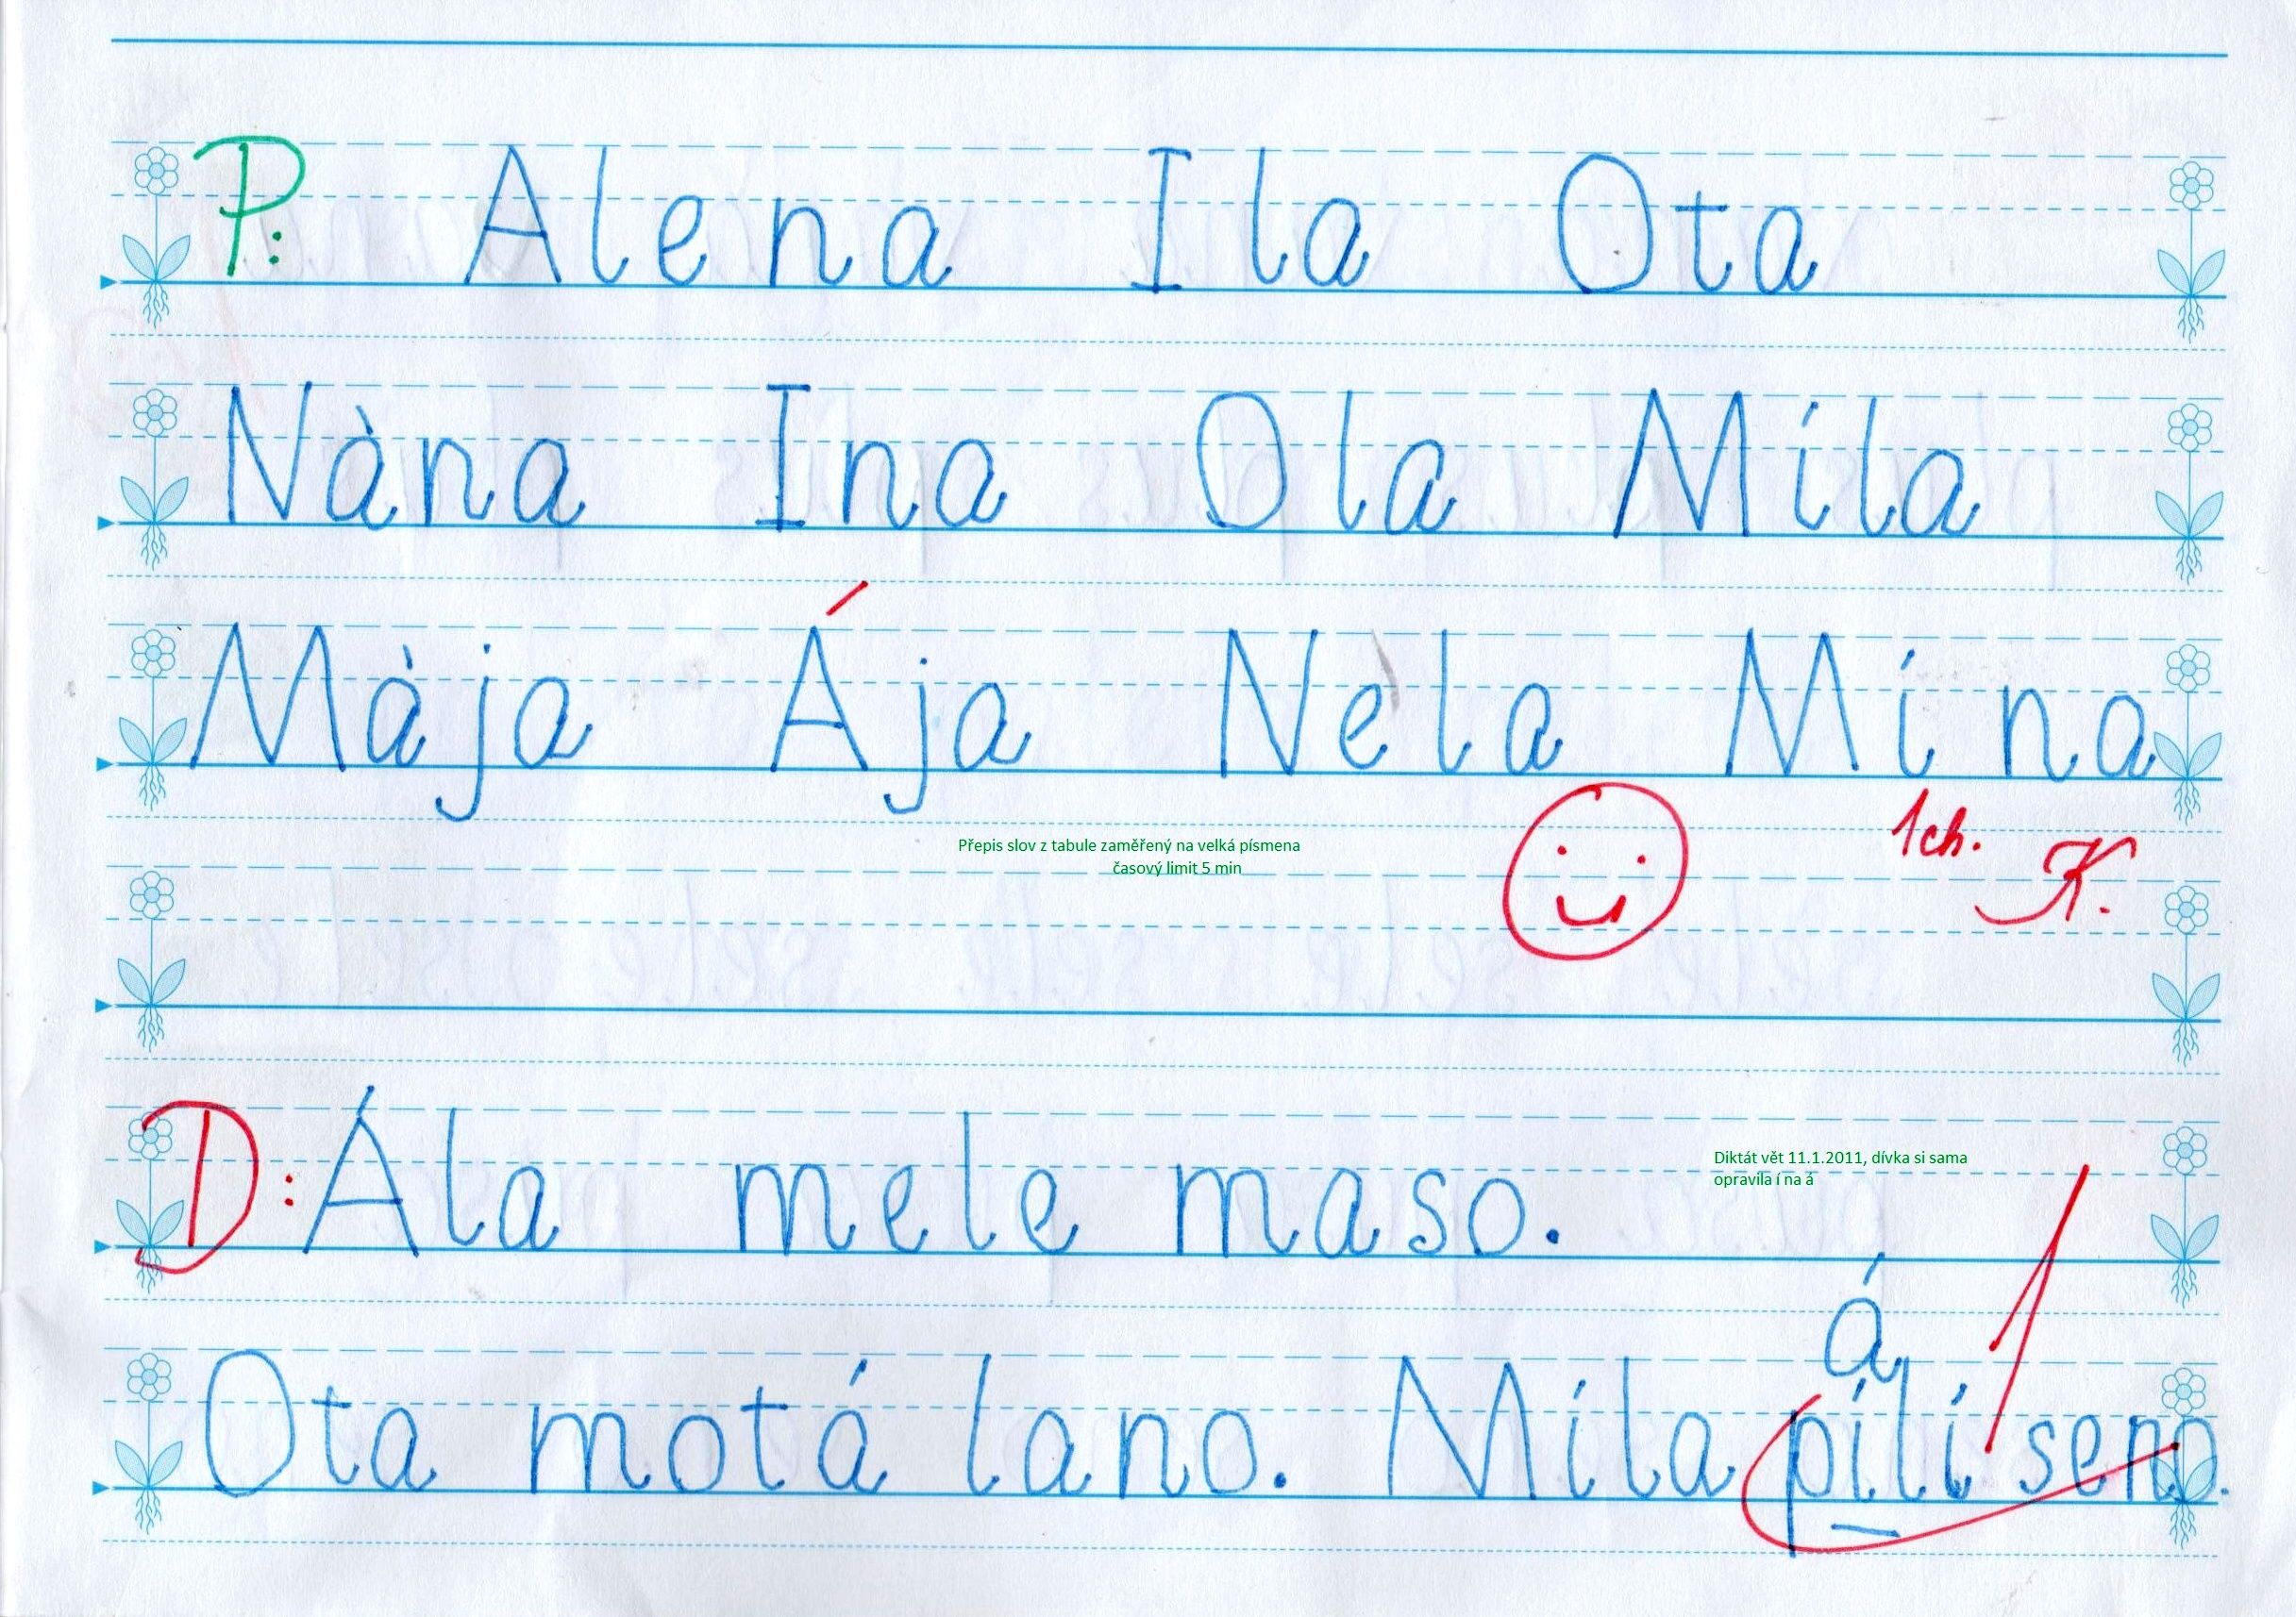 P: Alena Ila Ota
Nàna Ina Ola Míla
Màja Ája Nela Mína
1ch.
Přepis slov z tabule zaměřený na velká písmena
časový limit 5 min
K.
D: Ála mele maso.
Diktát vět 11.1.2011, dívka si sama
opravila í na á
á
Ota motá lano. Míla pílí seno.
1